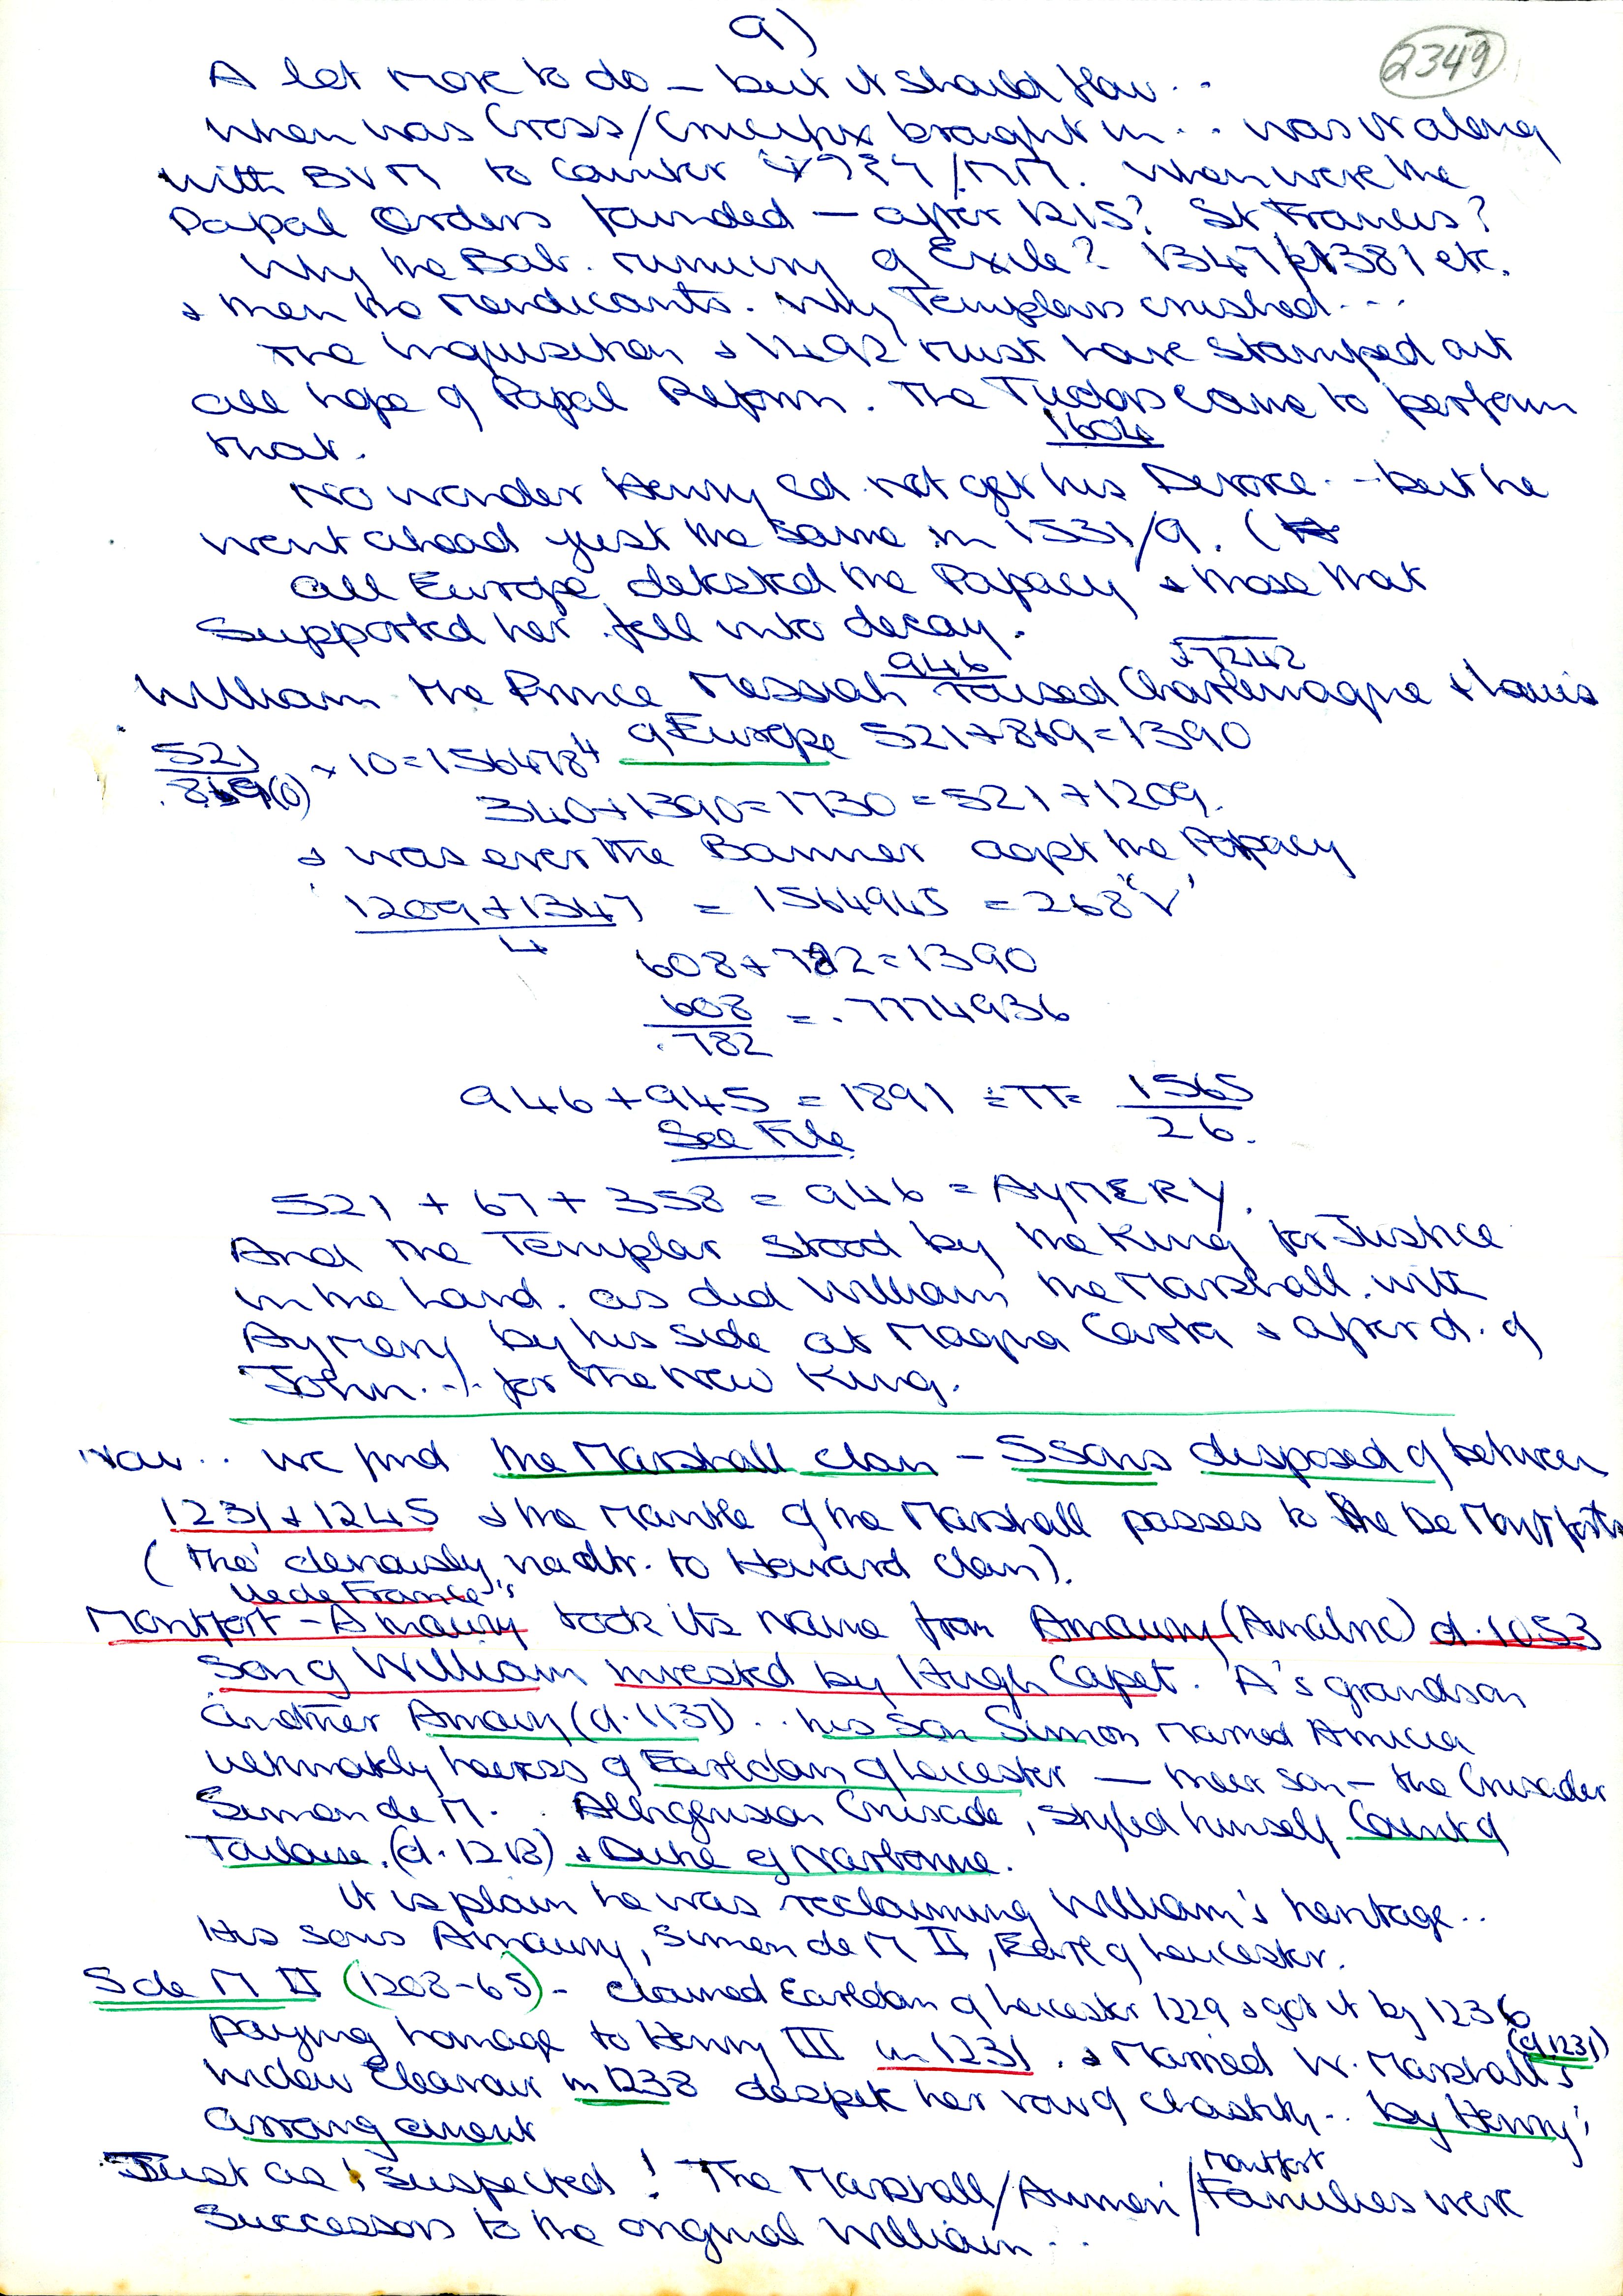 9)
2349
A lot more to do – but it should flow...
When was Cross/Crucifix brought in... was it along
with BVM to counter /MM. When were the
Papal Orders founded – after 1215? St Francis?
Why the Bab. running of Exile? 1347 1381 etc.
& then the Mendicants. Why Templars crushed...
The Inquisition & 1492 must have stamped out
all hope of Papal Reform. The Tudors came to perform
that.
1604
No wonder Henry cd. not get his Divorce... but he
went ahead just the same in 1531/9. (
All Europe detested the Papacy & those that
supported her fell into decay.
946
1242
William the Prince Messiah raised Charlemagne & Louis
of Europe 521+869=1390
521 × 10=1564784
869(0)
340+1390=1730=521+1209.
& was ever the Banner agst the Papacy
1209+1347 = 1564945 = 268 'V'
4
608+782=1390
608 = .7774936
.782
946+945 = 1891 ÷π= 1565
26.
See File
521 + 67+ 358 = 946 = AYMERY.
And the Templar stood by the King for Justice
in the Land. as did William the Marshall. with
Aymery by his side at Magna Carta & after d. of
John... for the new King.
Now.. we find the Marshall clan – 5 Sons disposed of between
1231 & 1245 & the Mantle of the Marshall passes to the De Montforts
(tho' deviously via dtr. to Howard clan).
Ile de France's
Montfort-Amaury took its name from Amaury (Amalric) d.1053
son of William invested by Hugh Capet. A's grandson
another Amaury (d.1137).. his son Simon married Amicia
ultimately heiress of Earldom of Leicester – their son – the Crusader
Simon de M. Albigensian Crusade, styled himself Count of
Toulouse. (d.1218) & Duke of Narbonne.
It is plain he was reclaiming William's heritage..
His sons Amaury, Simon de M II, Earl of Leicester.
S de M II (1208-65) – claimed Earldom of Leicester 1229 & got it by 1236
paying homage to Henry III in 1231. & Married W. Marshall's
(d.1231)
widow Eleanour in 1238 despite her vow of chastity.. by Henry's
arrangement
Just as I suspected! The Marshall/Aimeri/Montfort
Families were
Successors to the original William..